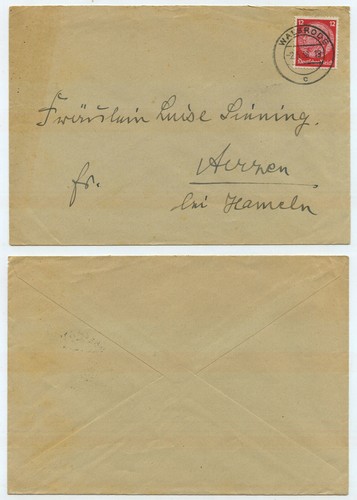 WALSRODE
c
12 12
Fräulein Luise Siening.
Aerzen
fr.
bei Hameln